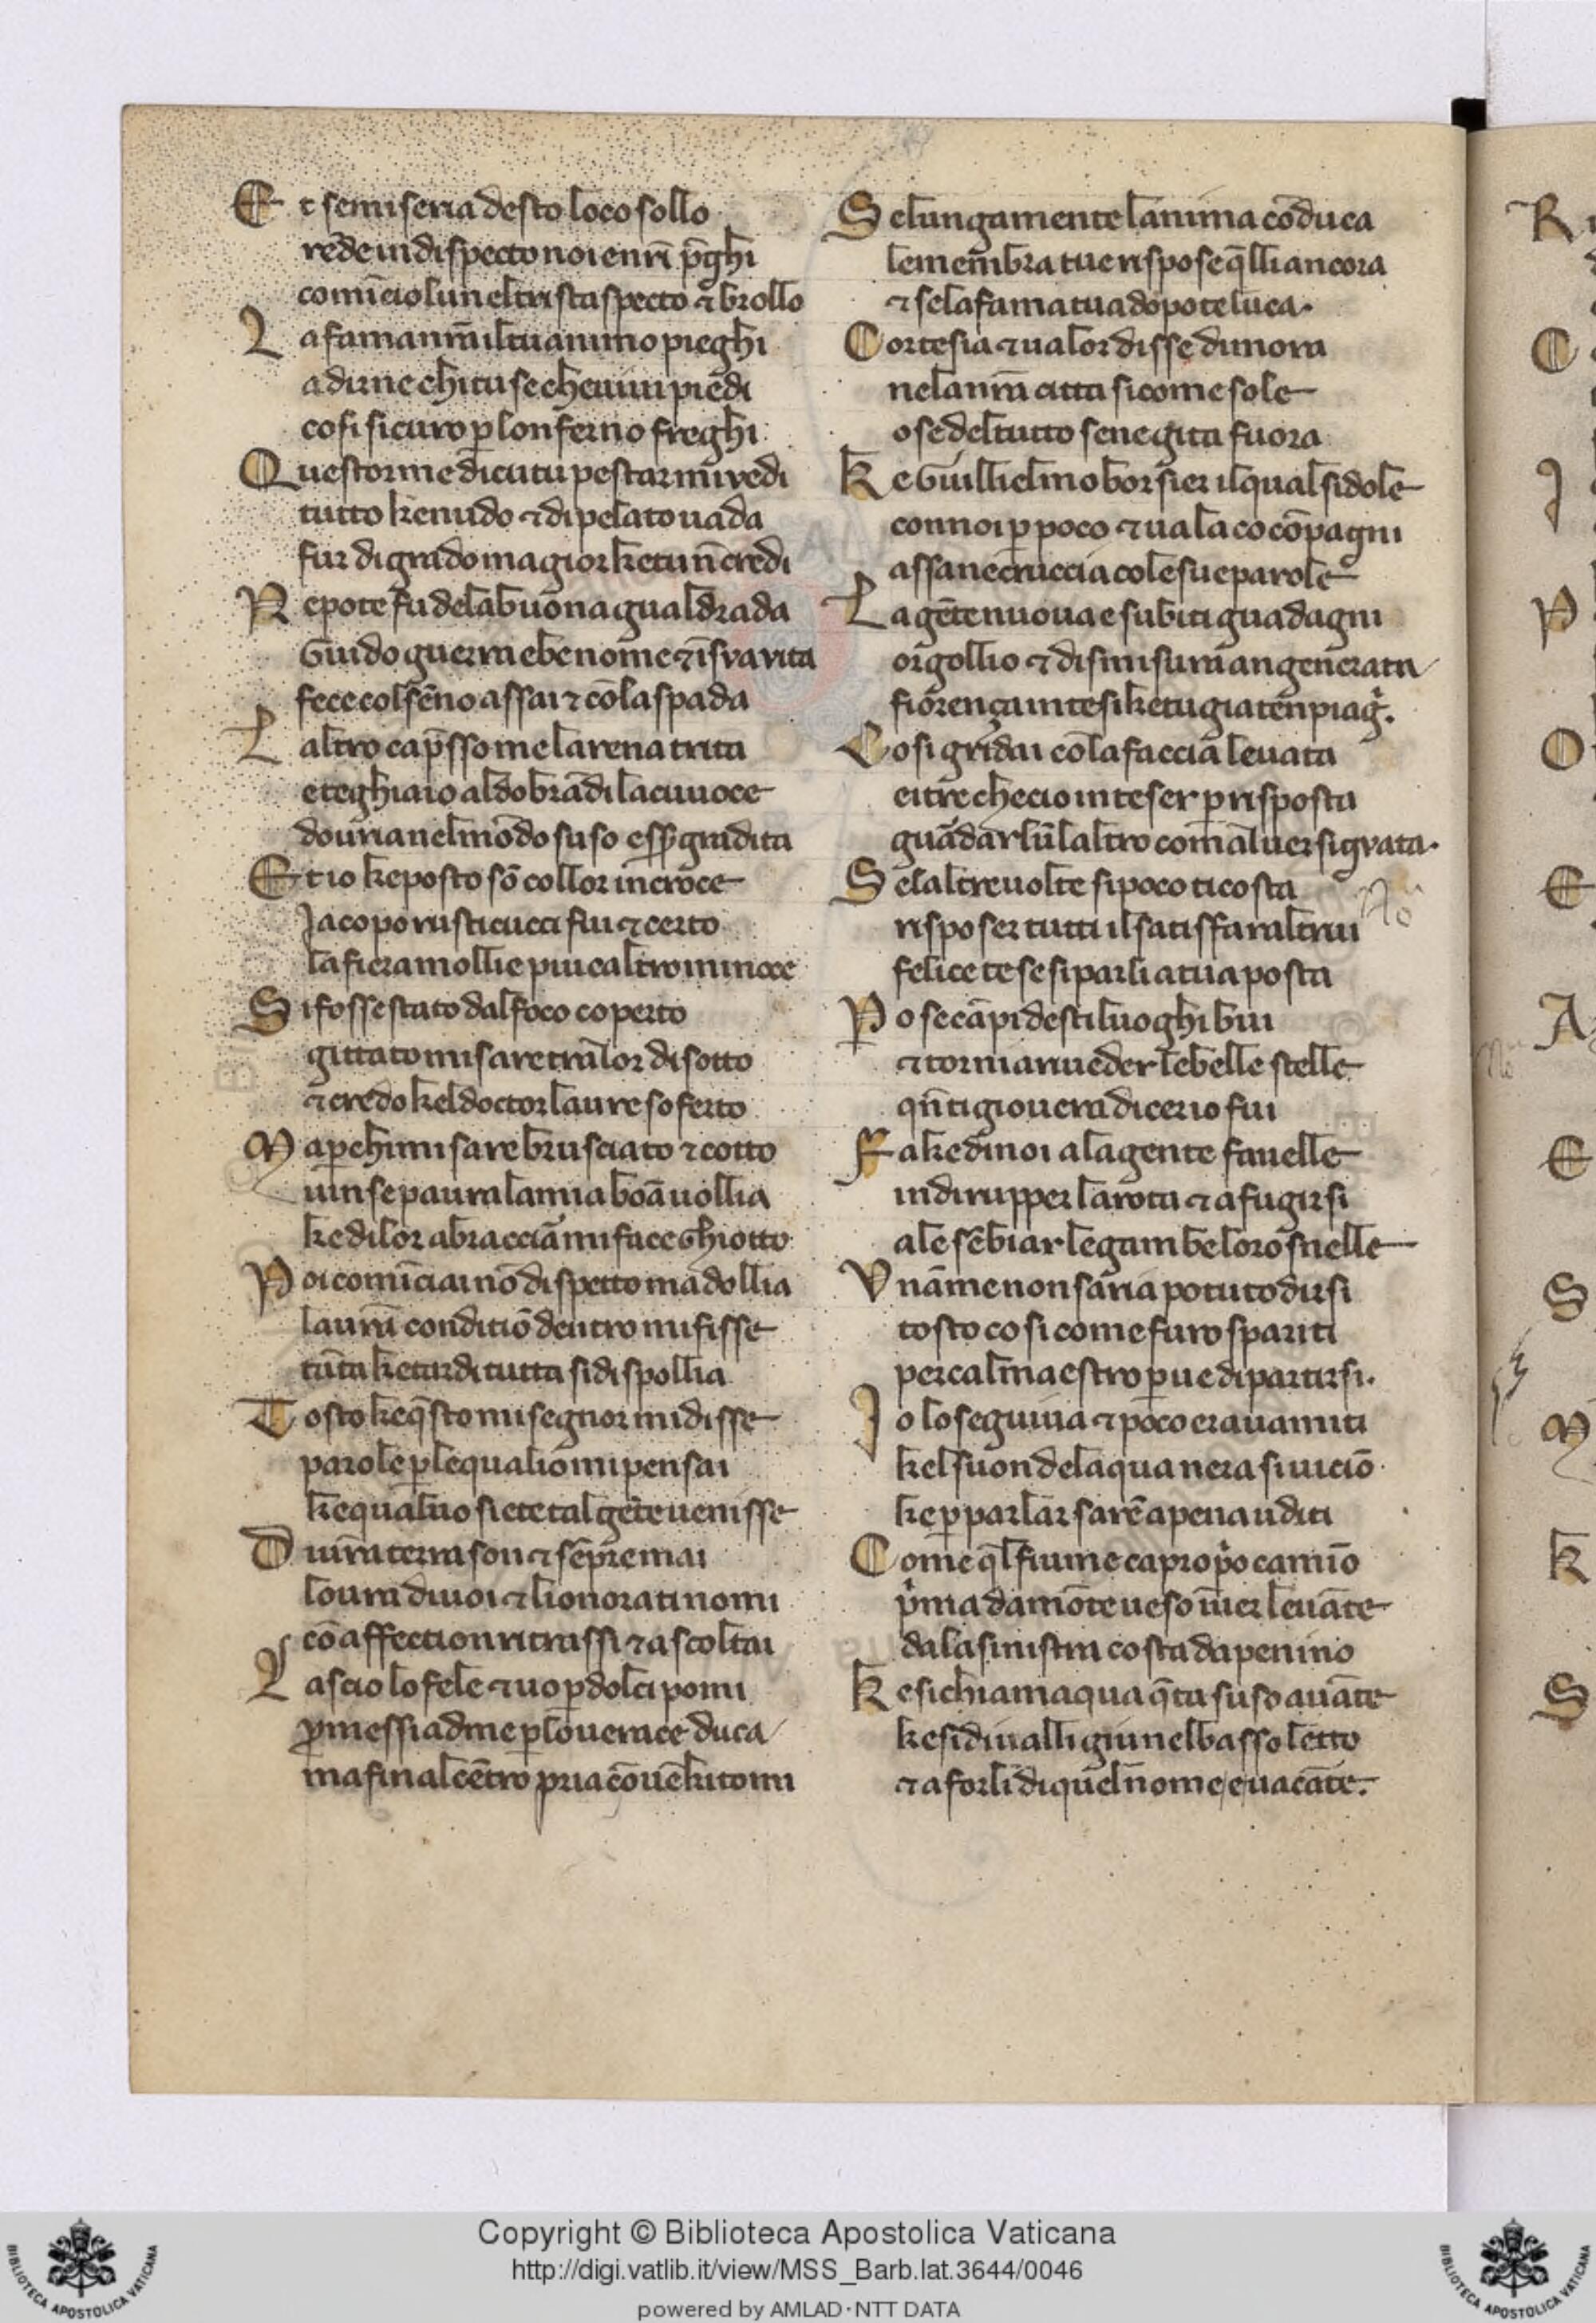 Et semiseria desto loco sollo
rēde in dispecto noi enr̄i p̄ghi
comīcio lun el tristaspecto ⁊ brollo
La fama nr̄a il tu animo pieghi
a dirne chi tu se che uiui piedi
cosi sicuro ꝑ lonferno freghi
Questorme di cu tu pestar mi vedi
tutto ke nudo ⁊ dipelato uada
fur di grado magior ke tu n̄ credi
Nepote fu dela buona gualdrada
Guido guerra ebe nome ⁊ ī sva vita
fece col sēno assai ⁊ cō la spada
Laltro capsso me larena trita
e teghiaio aldobrādi la cui uoce
douria nel mōdo suso esser gradita
Et io ke posto sō collor in croce
Jacopo rusticucci fui ⁊ certo
la fiera mollie piu caltro mi noce
Si fosse stato dal foco coperto
gittato mi sare tra lor di sotto
⁊ credo kel doctor laure soferto
Ma perchi mi sare brusciato ⁊ cotto
uinse paura la mia boā uollia
ke di lor abracciā mi facea ghiotto
Poi comīciai nō dispetto ma dollia
la ur̄a conditiō dentro mi fisse
tāta ke tardi tutta si dispollia
Tosto ke q̄sto mi segnor mi disse
parole ꝑ le quali io mi pensai
ke qual uo siete tal gēte uenisse
Di ur̄a terra son ⁊ sēpre mai
loura di uoi ⁊ li onorati nomi
cō affection ritrassi ⁊ ascoltai
Lascio lo fele ⁊ uo ꝑ dolci pomi
ꝓmessi ad me ꝑ lo uerace duca
ma fin al cētro pria cōuē ki tomi
Se lungamente lanima cōduca
le mēmbra tue rispose q̄lli ancora
⁊ se la fama tua dopo te luca.
Cortesia ⁊ ualor disse dimora
nela nr̄a citta si come sole
o se del tutto sene gita fuora
Ke Guillielmo borsier il qual si dole
con noi ꝑ poco ⁊ ua la co cōpagni
assa ne cruccia cole sue parole
La gēte nuoua e subiti guadagni
orgollio ⁊ dismisura an generata
fiorença in te si ke tu gia ten piag̃.
Cosi gridai cō la faccia leuata
ei tre che cio inteser ꝑ risposta
guādar lū laltro com al uer si gvata.
Se laltre uolte si poco ti costa
risposer tutti il satisfar altrui
felice te se si parli a tua posta
Po se cāpi desti luoghi bui
⁊ torni a riueder le belle stelle
qn̄ ti giouera dicer io fui
Fa ke di noi ala gente fauelle
indi rupper la rota ⁊ a fugirsi
ale sēbiar le gambe loro snelle
Vn āmen non saria potuto dirsi
tosto cosi come furo spariti
per cal maestro parue di partirsi.
Jo lo seguiua ⁊ poco erauam iti
kel suon de laqua nera si uiciō
ke ꝑ parlar sarē apena uditi
Come q̄l fiume ca propo camīo
prima da mōte ueso īuer leuāte
dala sinistra costa dapenino
Ke si chiama qua q̄ta suso auāte
ke si diualli giu nel basso letto
⁊ a forli di quel nome e uacāte.
No
Copyright © Biblioteca Apostolica Vaticana
http://digi.vatlib.it/view/MSS_Barb.lat.3644/0046
powered by AMLAD·NTT DATA
BIBLIOTECA APOSTOLICA VATICANA
BIBLIOTECA APOSTOLICA VATICANA